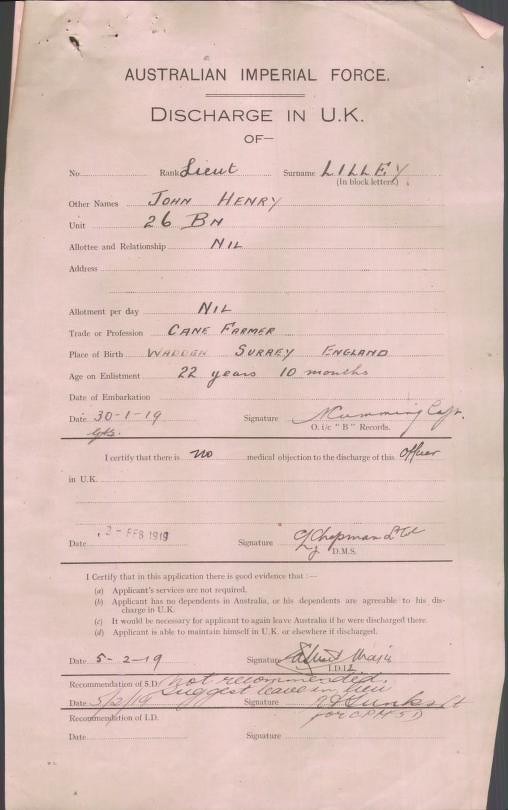 AUSTRALIAN IMPERIAL FORCE.
DISCHARGE IN U.K.
OF—
No. Rank Lieut Surname LILLEY
(In block letters.)
Other Names JOHN HENRY
Unit 26 BN
Allottee and Relationship NIL
Address
Allotment per day NIL
Trade or Profession CANE FARMER
Place of Birth WADDON SURREY ENGLAND
Age on Enlistment 22 years 10 months
Date of Embarkation
Date 30-1-19 Signature NCumming Capt.
O. i/c "B" Records.
I certify that there is no medical objection to the discharge of this officer
in U.K.
Date 2- FEB 1919 Signature Chapman
D.M.S.
I Certify that in this application there is good evidence that :—
(a) Applicant's services are not required.
(b) Applicant has no dependents in Australia, or his dependents are agreeable to his dis-
charge in U.K.
(c) It would be necessary for applicant to again leave Australia if he were discharged there.
(d) Applicant is able to maintain himself in U.K. or elsewhere if discharged.
Date 5-2-19 Signature
Recommendation of S.D. Not recommended.
Suggest leave in lieu
Date 5/2/19 Signature
for
Recommendation of I.D.
Date Signature